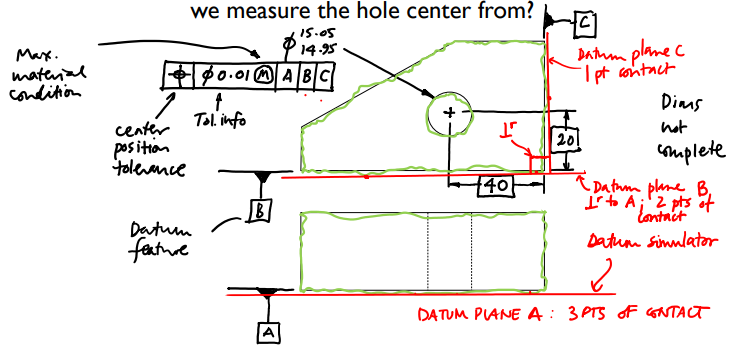 we measure the hole center from?
C
⌀ 15.05
14.95
Max.
material
condition
⌖ ⌀0.01 Ⓜ A B C
Tol. info
center
position
tolerance
Datum plane C
1 pt contact
Dims
not
complete
1r
20
40
B
Datum plane B,
1r to A; 2 pts of
contact
Datum
feature
Datum simulator
A
DATUM PLANE A : 3 PTS OF CONTACT